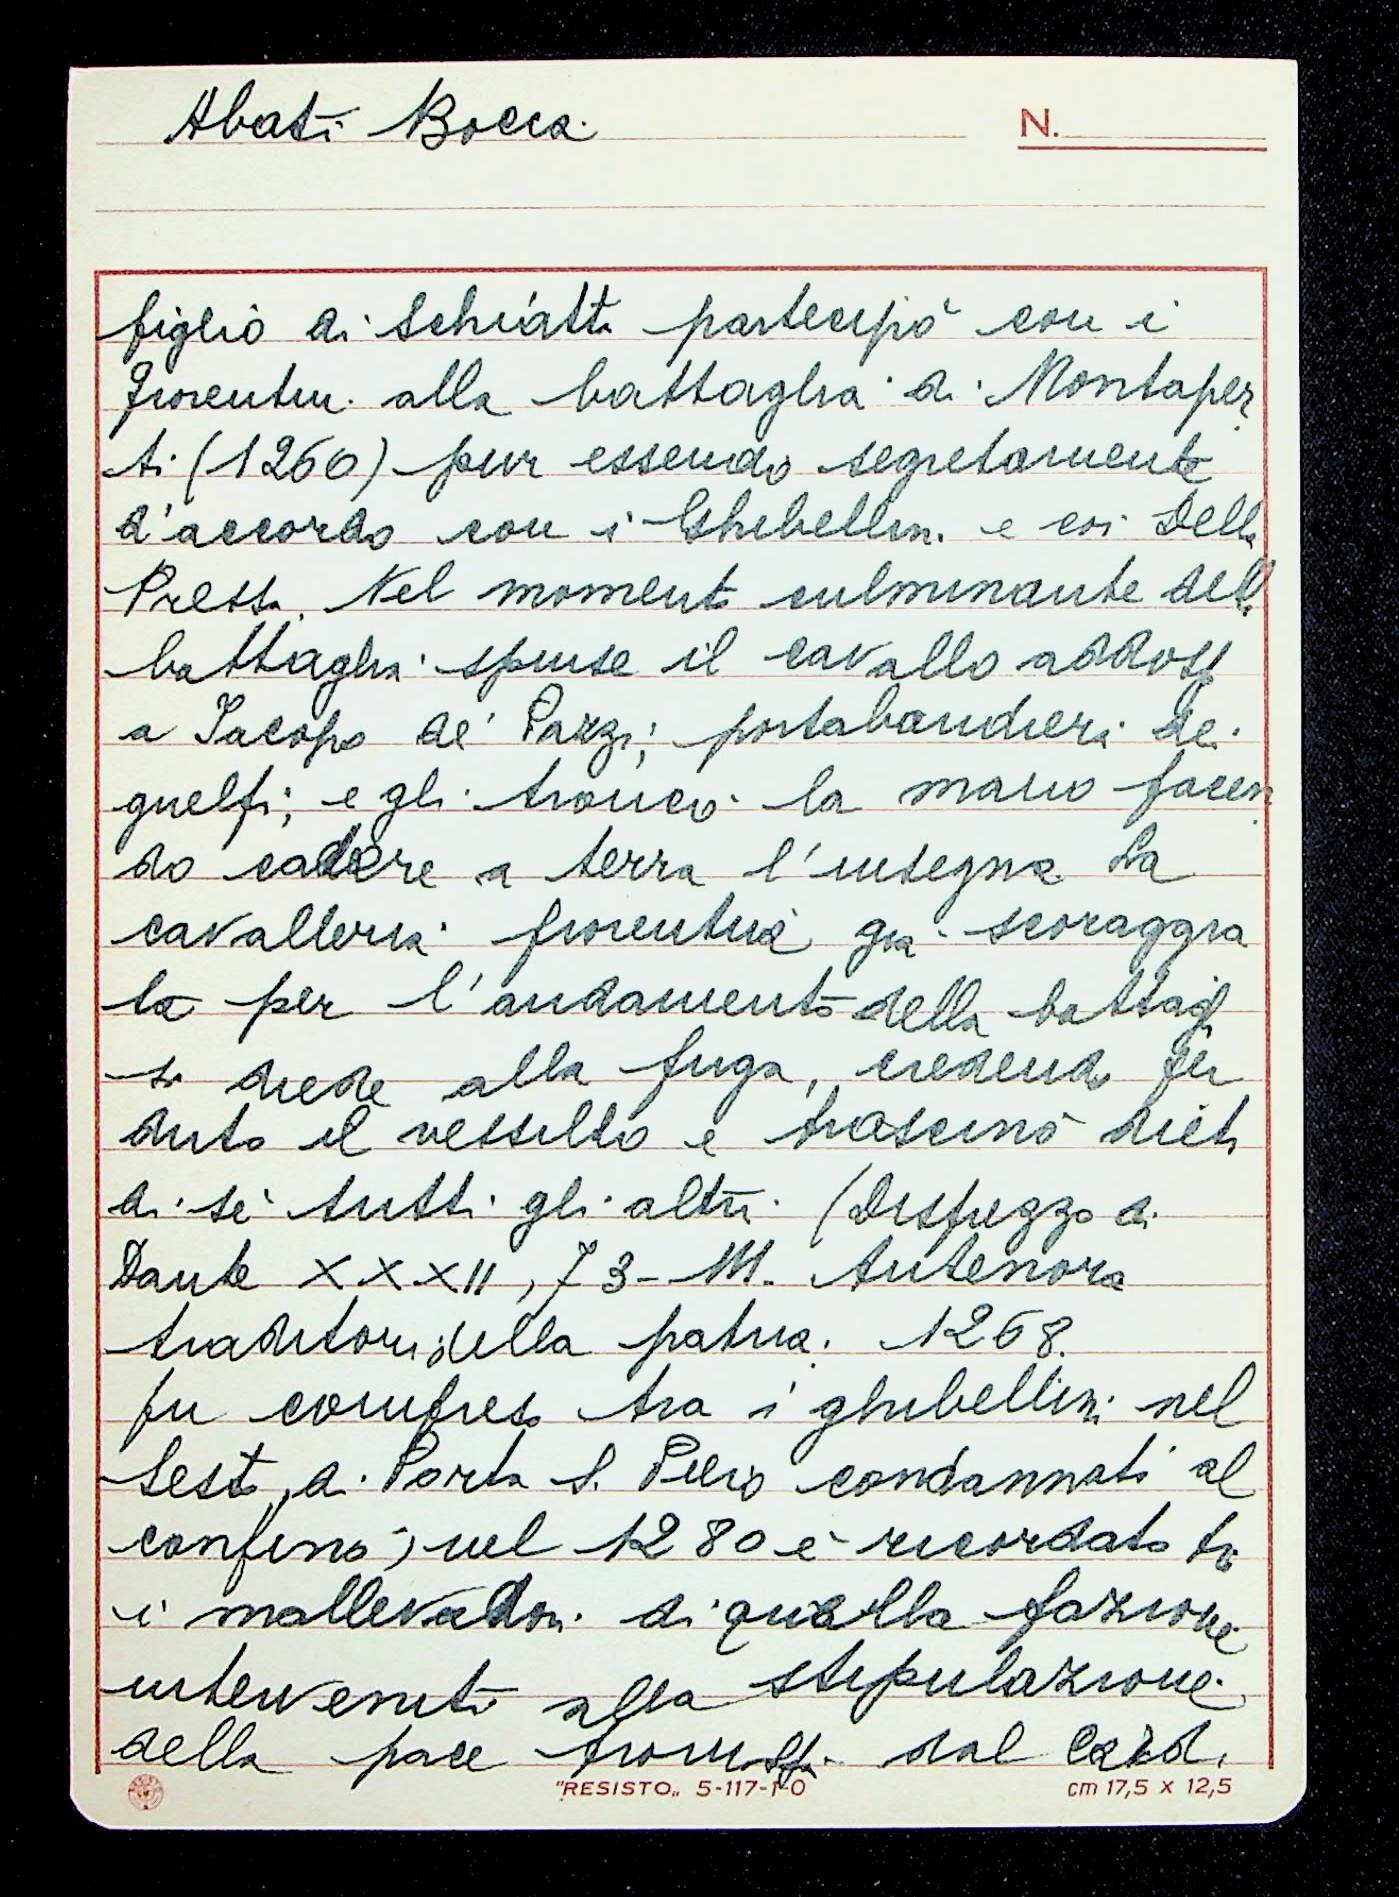 Abati Bocca
N.
figlio di Schiatta partecipò con i
fiorentini alla battaglia di Montaper
ti (1260) pur essendo segretamente
d'accordo con i Ghibellini e coi Della
Pressa. Nel momento culminante della
battaglia spinse il cavallo addosso
a Jacopo de' Pazzi, portabandiera dei
guelfi, e gli troncò la mano facen
do cadere a terra l'insegna La
cavalleria fiorentina già scoraggia
ta per l'andamento della battagl
si diede alla fuga, credendo per
duto il vessillo e trascinò dietro
di sè tutti gli altri. (Disprezzo di
Dante XXXII, 73 - Antenora
traditori della patria. 1268.
fu compreso tra i ghibellini nel
Sesto di Porta S. Piero condannati al
confino; nel 1280 è ricordato tra
i mallevadori di quella fazione
intervenuti alla stipulazione
della pace promossa dal Card.
"RESISTO„ 5-117-1-0
cm 17,5 x 12,5